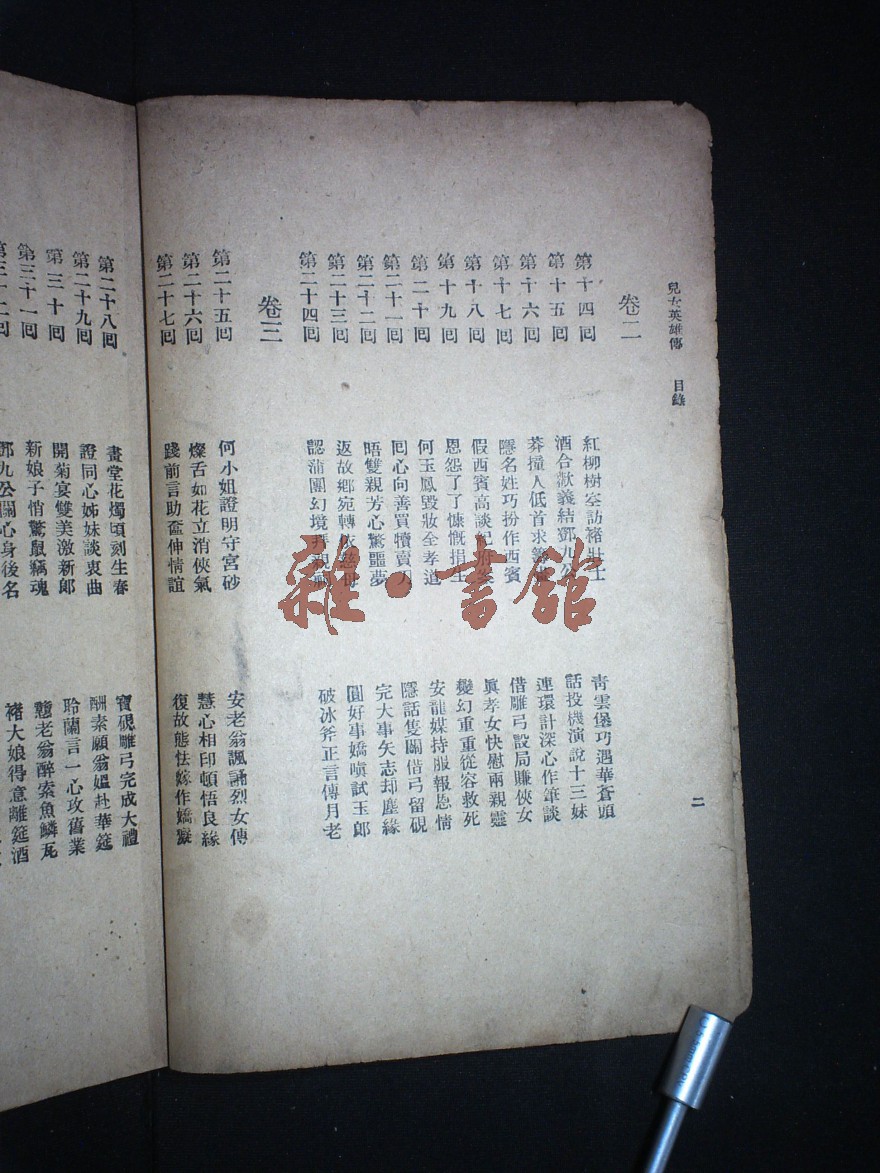 兒女英雄傳　目錄
二
卷二
第十四回　紅柳樹空訪褚壯士　青雲堡巧遇華蒼頭
第十五回　酒合歡義結鄧九公　話投機演說十三妹
第十六回　莽撞人低首求　連環計深心作筆談
第十七回　隱名姓巧扮作西賓　借雕弓設局賺俠女
第十八回　假西賓高談紀府　眞孝女快慰兩親靈
第十九回　恩怨了了慷慨捐生　變幻重重從容救死
第二十回　何玉鳳毀妝全孝道　安龍媒持服報恩情
第二十一回　回心向善買犢賣刀　隱話雙關借弓留硯
第二十二回　晤雙親芳心驚噩夢　完大事矢志却塵緣
第二十三回　返故鄉宛轉依慈母　圓好事嬌嗔試玉郎
第二十四回　認蒲團幻境拜親祠　破冰斧正言傳月老
卷三
第二十五回　何小姐證明守宮砂　安老翁諷誦烈女傳
第二十六回　燦舌如花立消俠氣　慧心相印頓悟良緣
第二十七回　踐前言助奩伸情誼　復故態怯嫁作嬌癡
第二十八回　畫堂花燭頃刻生春　寶硯雕弓完成大禮
第二十九回　證同心姊妹談衷曲　酬素願翁媼赴華筵
第三十回　開菊宴雙美激新郎　聆蘭言一心攻舊業
第三十一回　新娘子悄驚鼠竊魂　戇老翁醉索魚鱗瓦
第三十二回　鄧九公關心身後名　褚大娘得意離筵酒
雜·書館